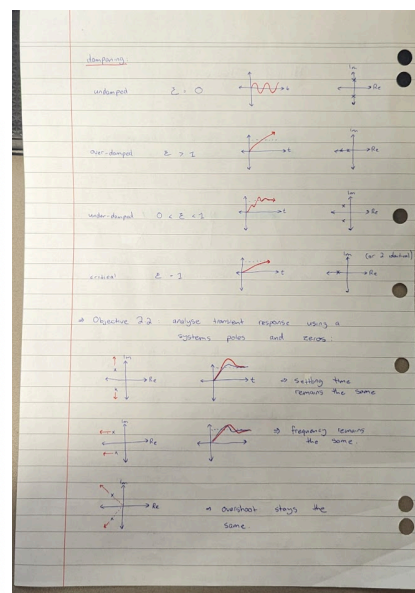 damping:
Im
undamped ζ = 0 t Re
Im
over-damped ζ > 1 t Re
Im
under-damped 0 < ζ < 1 t Re
Im (or 2 identical)
critical ζ = 1 t Re
⇒ Objective 2.2 : analyse transient response using a
systems poles and zeros.
Im
Re t ⇒ settling time
remains the same
Im
Re ⇒ frequency remains
the same.
Im
Re ⇒ overshoot stays the
same.